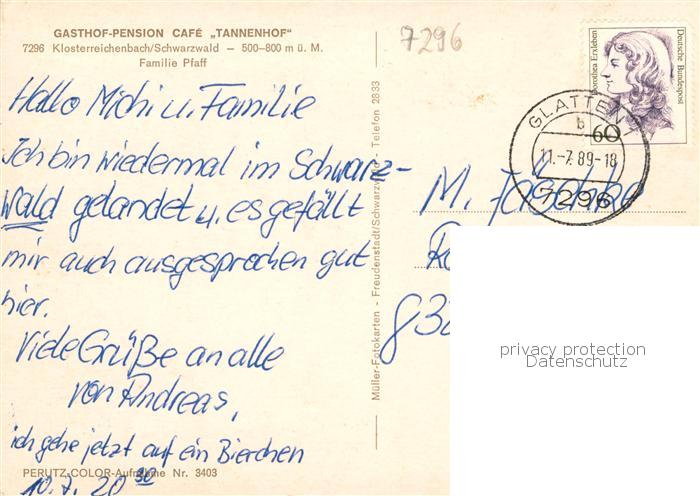 GASTHOF-PENSION CAFÉ „TANNENHOF"
7296 Klosterreichenbach/Schwarzwald – 500–800 m ü. M.
Familie Pfaff
Hallo Michi u. Familie
Ich bin wiedermal im Schwarz-
wald gelandet u. es gefällt
mir auch ausgesprochen gut
hier.
Viele Grüße an alle
von Andreas,
ich gehe jetzt auf ein Bierchen
PERUTZ-COLOR-Aufnahme Nr. 3403
10.7. 20 30
Müller-Fotokarten - Freudenstadt/Schwarzwald - Telefon 2833
7296
Dorothea Erxleben
Deutsche Bundespost
60
GLATTEN 1
b
11.-7.89-18
7296
M. Jaschke
832
privacy protection
Datenschutz